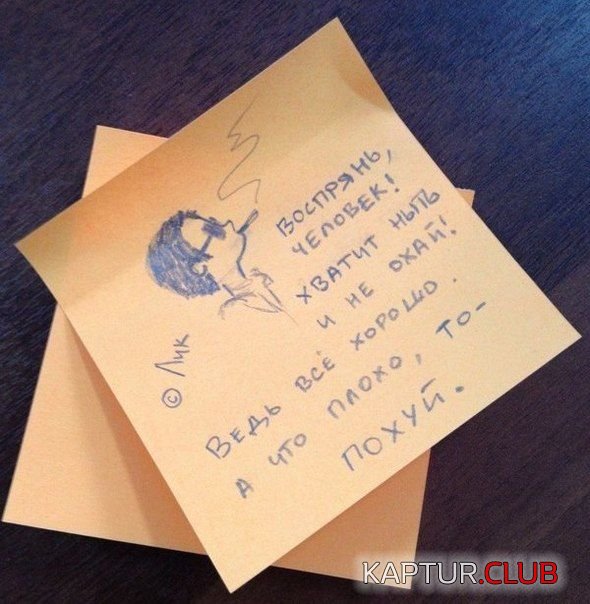 ВОСПРЯНЬ,
ЧЕЛОВЕК!
ХВАТИТ НЫТЬ
И НЕ ОХАЙ!
ВЕДЬ ВСЁ ХОРОШО.
А ЧТО ПЛОХО, ТО-
ПОХУЙ.
© Лик
KAPTUR.CLUB